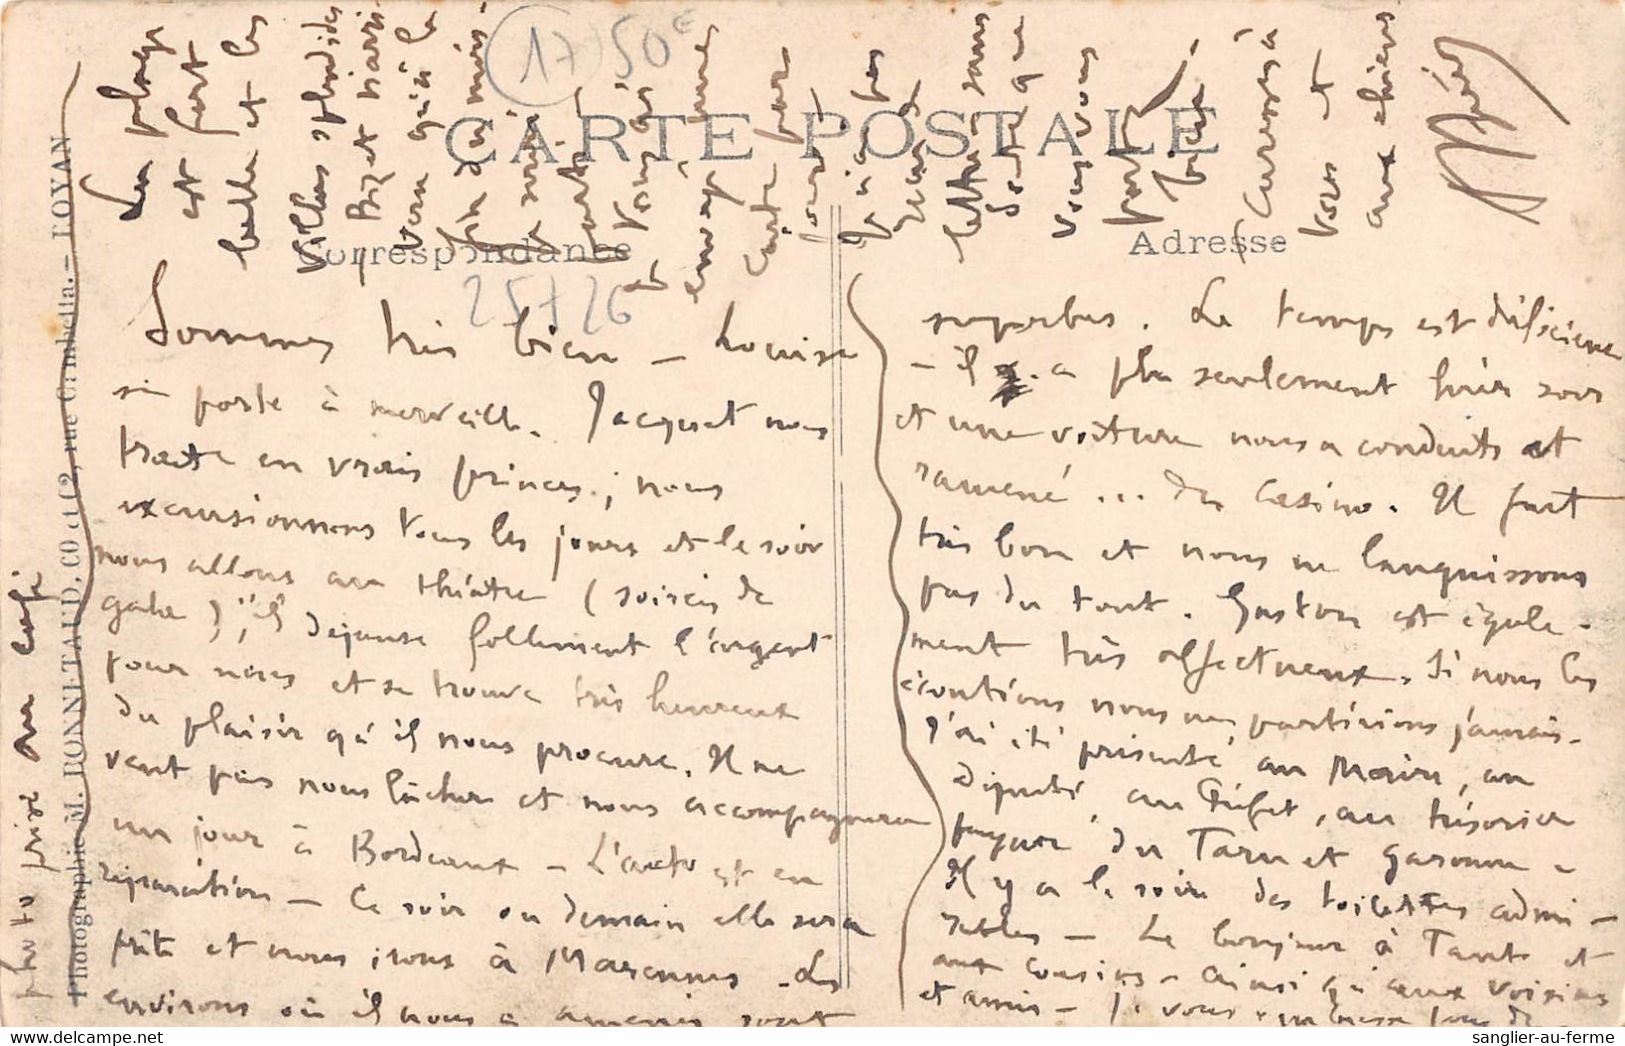 17 50€
CARTE POSTALE
Correspondance
Adresse
25726
Sommes très bien – Louise
se porte à merveille. Jacquet nous
traite en vrais princes ; nous
excursionnons tous les jours et le soir
nous allons au théâtre (soirées de
gala) ; il dépense follement l'argent
pour nous et se trouve très heureux
du plaisir qu'il nous procure. Il ne
veut pas nous lâcher et nous accompagnera
un jour à Bordeaux – L'auto est en
réparation – Ce soir ou demain elle sera
prête et nous irons à Marennes – Les
environs où il nous a amenés sont
superbes. Le temps est délicieux
– il a plu seulement hier soir
et une voiture nous a conduits et
ramené ... du Casino. Il fait
très bon et nous ne languissons
pas du tout. Gaston est égale-
ment très affectueux. Si nous les
écoutions nous ne partirions jamais.
J'ai été présenté au Maire, au
député, au Préfet, au trésorier
payeur du Tarn et Garonne –
Il y a le soir des toilettes admi-
rables – Le bonjour à Tante et
aux cousins – ainsi qu'aux voisins
et amis – Je vous embrasse tous
La plage
est fort
belle et les
villas splendides
vous
envoyé une
carte pour
lettre sans
vous
portez
bien.
Caresses à
vous et
aux chiens
photo prise au café
Photographie M. DONNETAUD, 60 et 62, rue Gambetta. – ROYAN
sanglier-au-ferme
www.delcampe.net